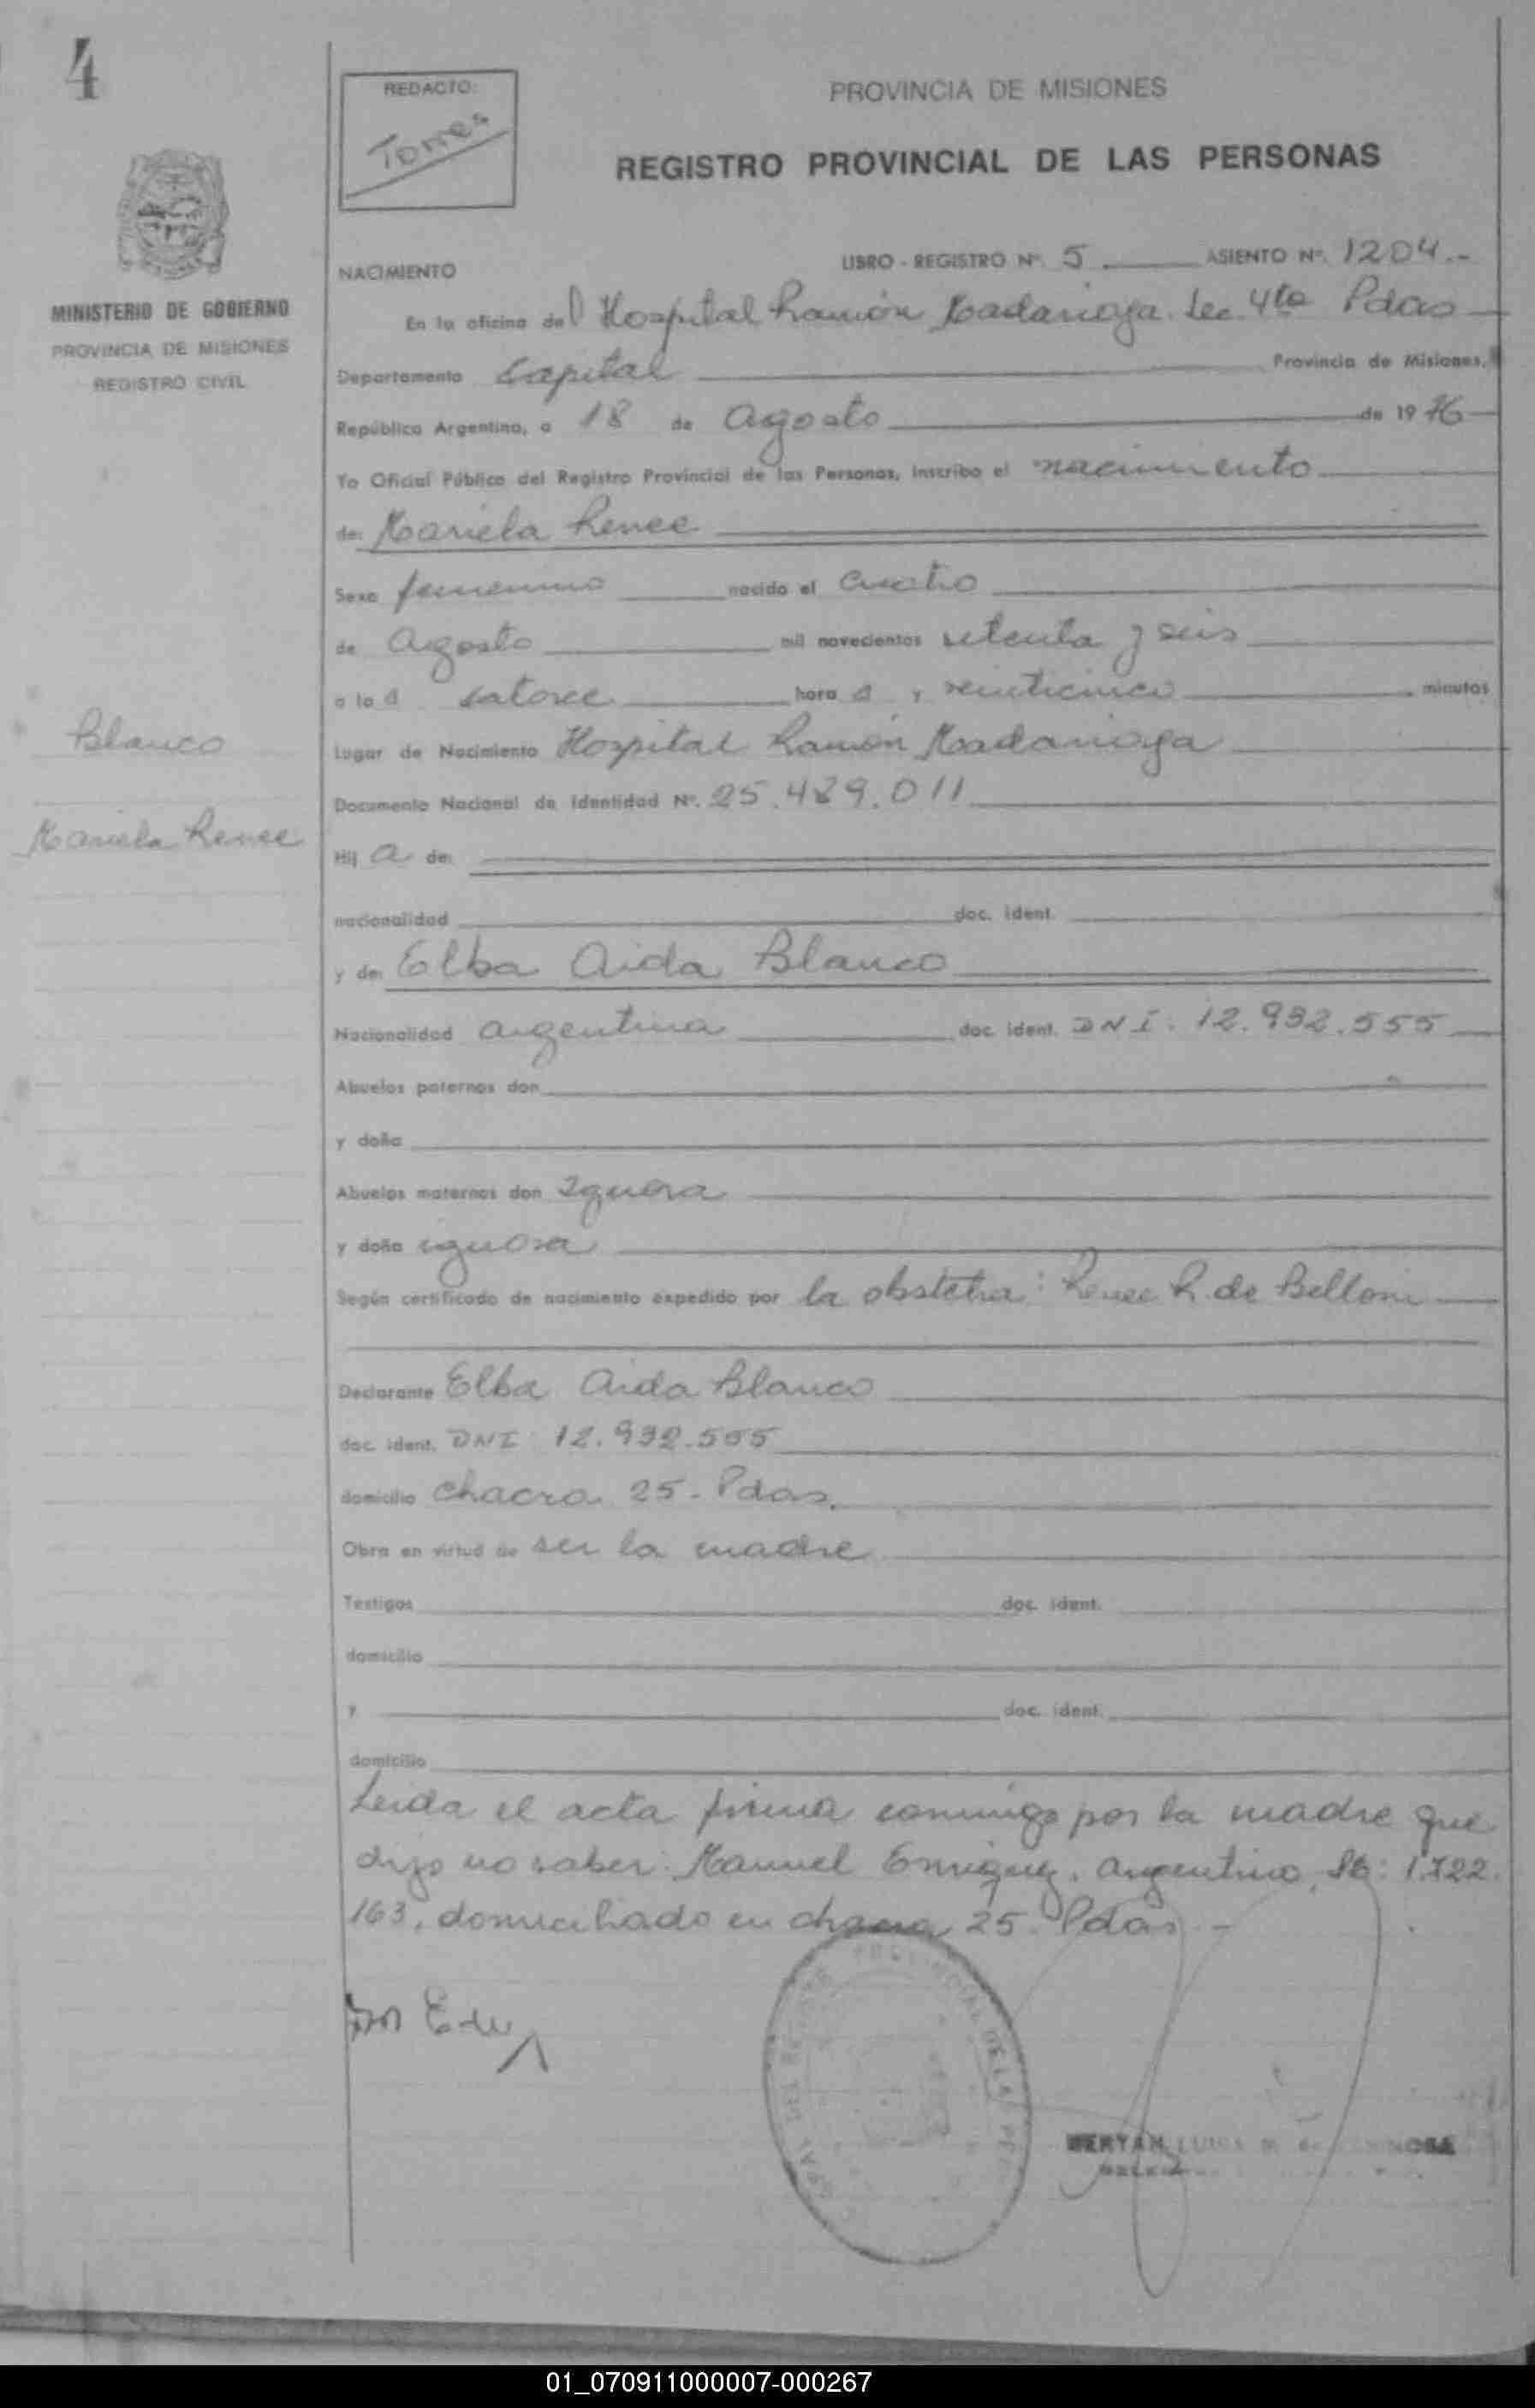 4
REDACTO:
Torres
PROVINCIA DE MISIONES
REGISTRO PROVINCIAL DE LAS PERSONAS
MINISTERIO DE GOBIERNO
PROVINCIA DE MISIONES
REGISTRO CIVIL
NACIMIENTO
LIBRO - REGISTRO Nº. 5 ASIENTO Nº. 1204.-
En la oficina del Hospital Ramón Madariaga. Sec. 4ta Pdas
Departamento Capital Provincia de Misiones,
República Argentina, a 18 de Agosto de 1976
Yo Oficial Público del Registro Provincial de las Personas, inscribo el nacimiento
de: Mariela Renee
Sexo femenino nacido el cuatro
de Agosto mil novecientos setenta y seis
a la s catorce hora s y veinticinco minutos
Blanco
Mariela Renee
Lugar de Nacimiento Hospital Ramón Madariaga
Documento Nacional de Identidad Nº. 25.489.011
Hij a de:
nacionalidad doc. ident.
y de: Elba Aida Blanco
Nacionalidad argentina doc. ident. DNI: 12.932.555
Abuelos paternos don
y doña
Abuelos maternos don Ignora
y doña ignora
Según certificado de nacimiento expedido por la obstetra: Renee R. de Belloni
Declarante Elba Aida Blanco
doc. ident. DNI 12.932.555
domicilio chacra 25 - Pdas.
Obra en virtud de ser la madre
Testigos doc. ident.
domicilio
y doc. ident.
domicilio
Leida el acta firma conmigo por la madre que
dijo no saber: Manuel Enriquez, argentino,
163, domiciliado en chacra 25. Pdas.-